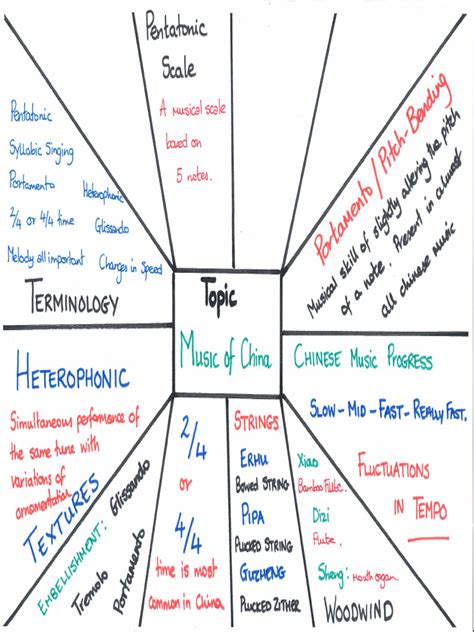 Pentatonic
Scale
A musical scale
based on
5 notes.
Portamento / Pitch-Bending
Musical skill of slightly altering the pitch
of a note. Present in almost
all chinese music
Pentatonic
Syllabic Singing
Portamento Heterophonic
2/4 or 4/4 time Glissando
Melody all important Changes in Speed
TERMINOLOGY
Topic
Music of China
CHINESE MUSIC PROGRESS
SLOW - MID - FAST - REALLY FAST.
FLUCTUATIONS
IN TEMPO
HETEROPHONIC
Simultaneous performance of
the same tune with
variations of
ornamentation.
TEXTURES
EMBELLISHMENT: Glissando
Tremolo
Portamento
2/4
or
4/4
time is most
common in China
STRINGS
ERHU
BOWED STRING
PIPA
PLUCKED STRING
GUZHENG
PLUCKED ZITHER
Xiao
Bamboo Flute.
Dizi
Flute.
Sheng: Mouth organ.
WOODWIND